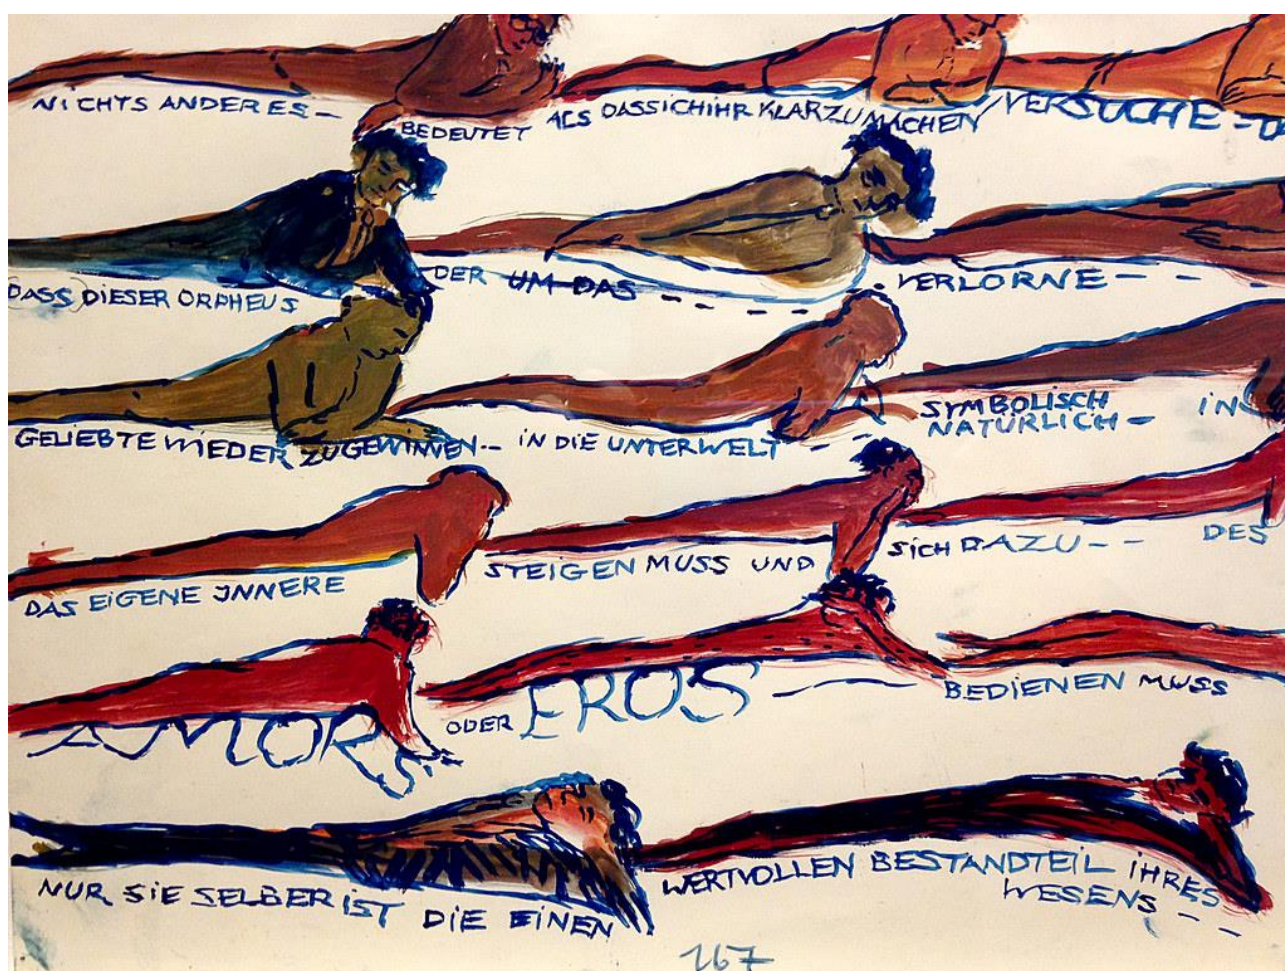 NICHTS ANDERES –
BEDEUTET ALS DASS ICH IHR KLARZUMACHEN / VERSUCHE –
(DASS) DIESER ORPHEUS DER UM DAS – – – VERLORNE – – –
GELIEBTE WIEDER ZUGEWINNEN – – IN DIE UNTERWELT – – SYMBOLISCH
NATÜRLICH – IN
DAS EIGENE INNERE STEIGEN MUSS UND SICH DAZU – – DES
AMORS – – ODER EROS – – BEDIENEN MUSS
NUR SIE SELBER IST DIE EINEN WERTVOLLEN BESTANDTEIL IHRES
WESENS – –
167